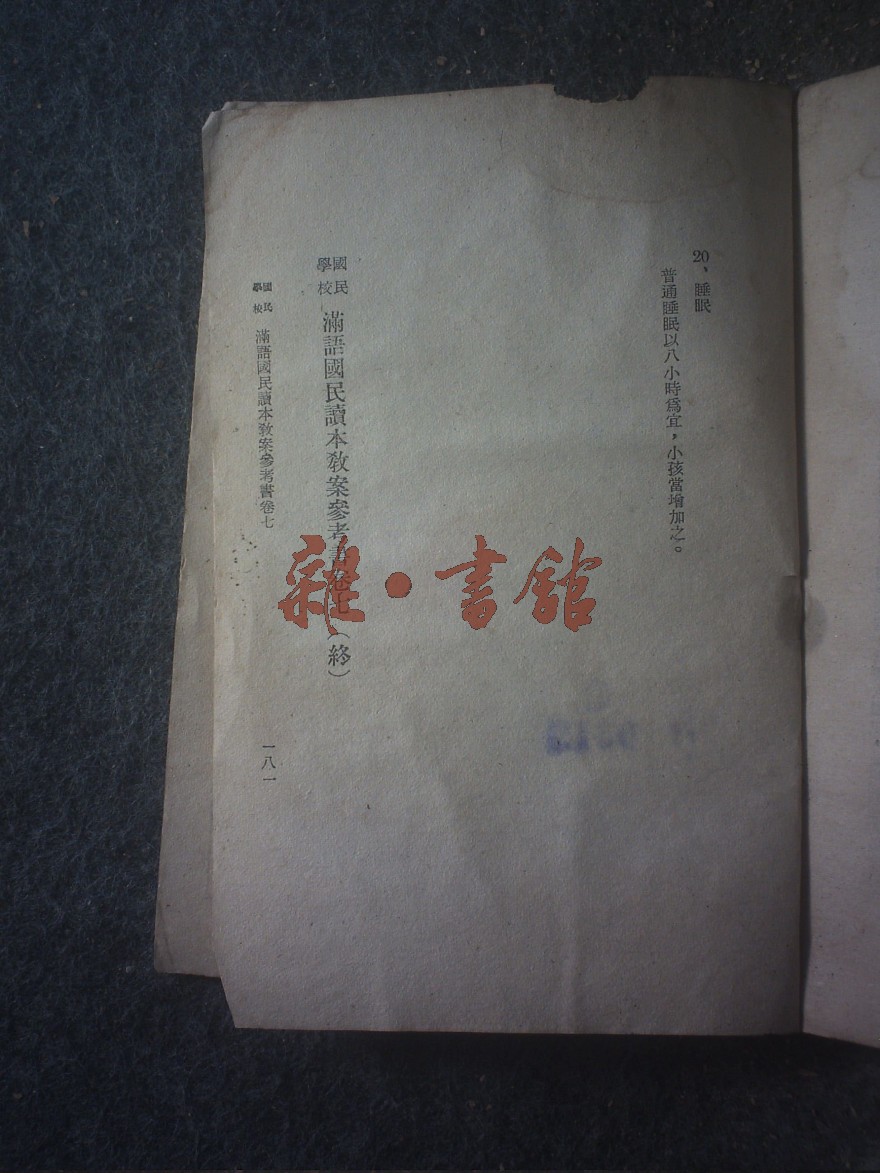 20，睡眠
普通睡眠以八小時爲宜，小孩當增加之。
國民學校 滿語國民讀本教案參考書卷七（終）
國民學校 滿語國民讀本教案參考書卷七
一八一
雜·書館